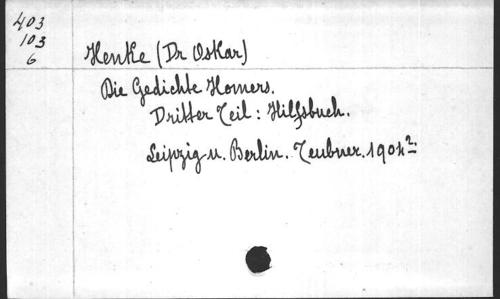 403
103
6
Henke (Dr Oskar)
Die Gedichte Homers.
Dritter Teil: Hilfsbuch.
Leipzig u. Berlin. Teubner. 1904²